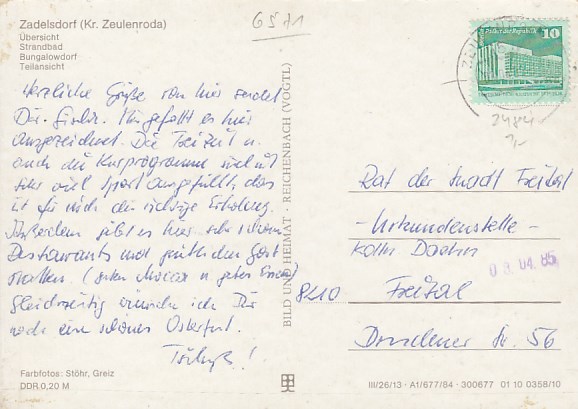 6571
Zadelsdorf (Kr. Zeulenroda)
Übersicht
Strandbad
Bungalowdorf
Teilansicht
Herzliche Grüße von hier sendet
Dir. Mir gefällt es hier
ausgezeichnet. Die Freizeit u.
auch die Kurprogramme sind mit
sehr viel Sport ausgefüllt, das
ist für mich die richtige Erholung.
Außerdem gibt es hier sehr schöne
Restaurants und gemütliche Gast
stätten. (guten Mocca u. gutes Essen)
Gleichzeitig wünsche ich Dir
noch ein schönes Osterfest.
Tschüß!
Farbfotos: Stöhr, Greiz
DDR 0,20 M
BILD UND HEIMAT · REICHENBACH (VOGTL)
Palast der Republik
10
Rat der Stadt Freital
- Urkundenstelle -
Kolln
03. 04. 85
8210 Freital
Dresdener Str. 56
III/26/13 · A1/677/84 · 300677 01 10 0358/10